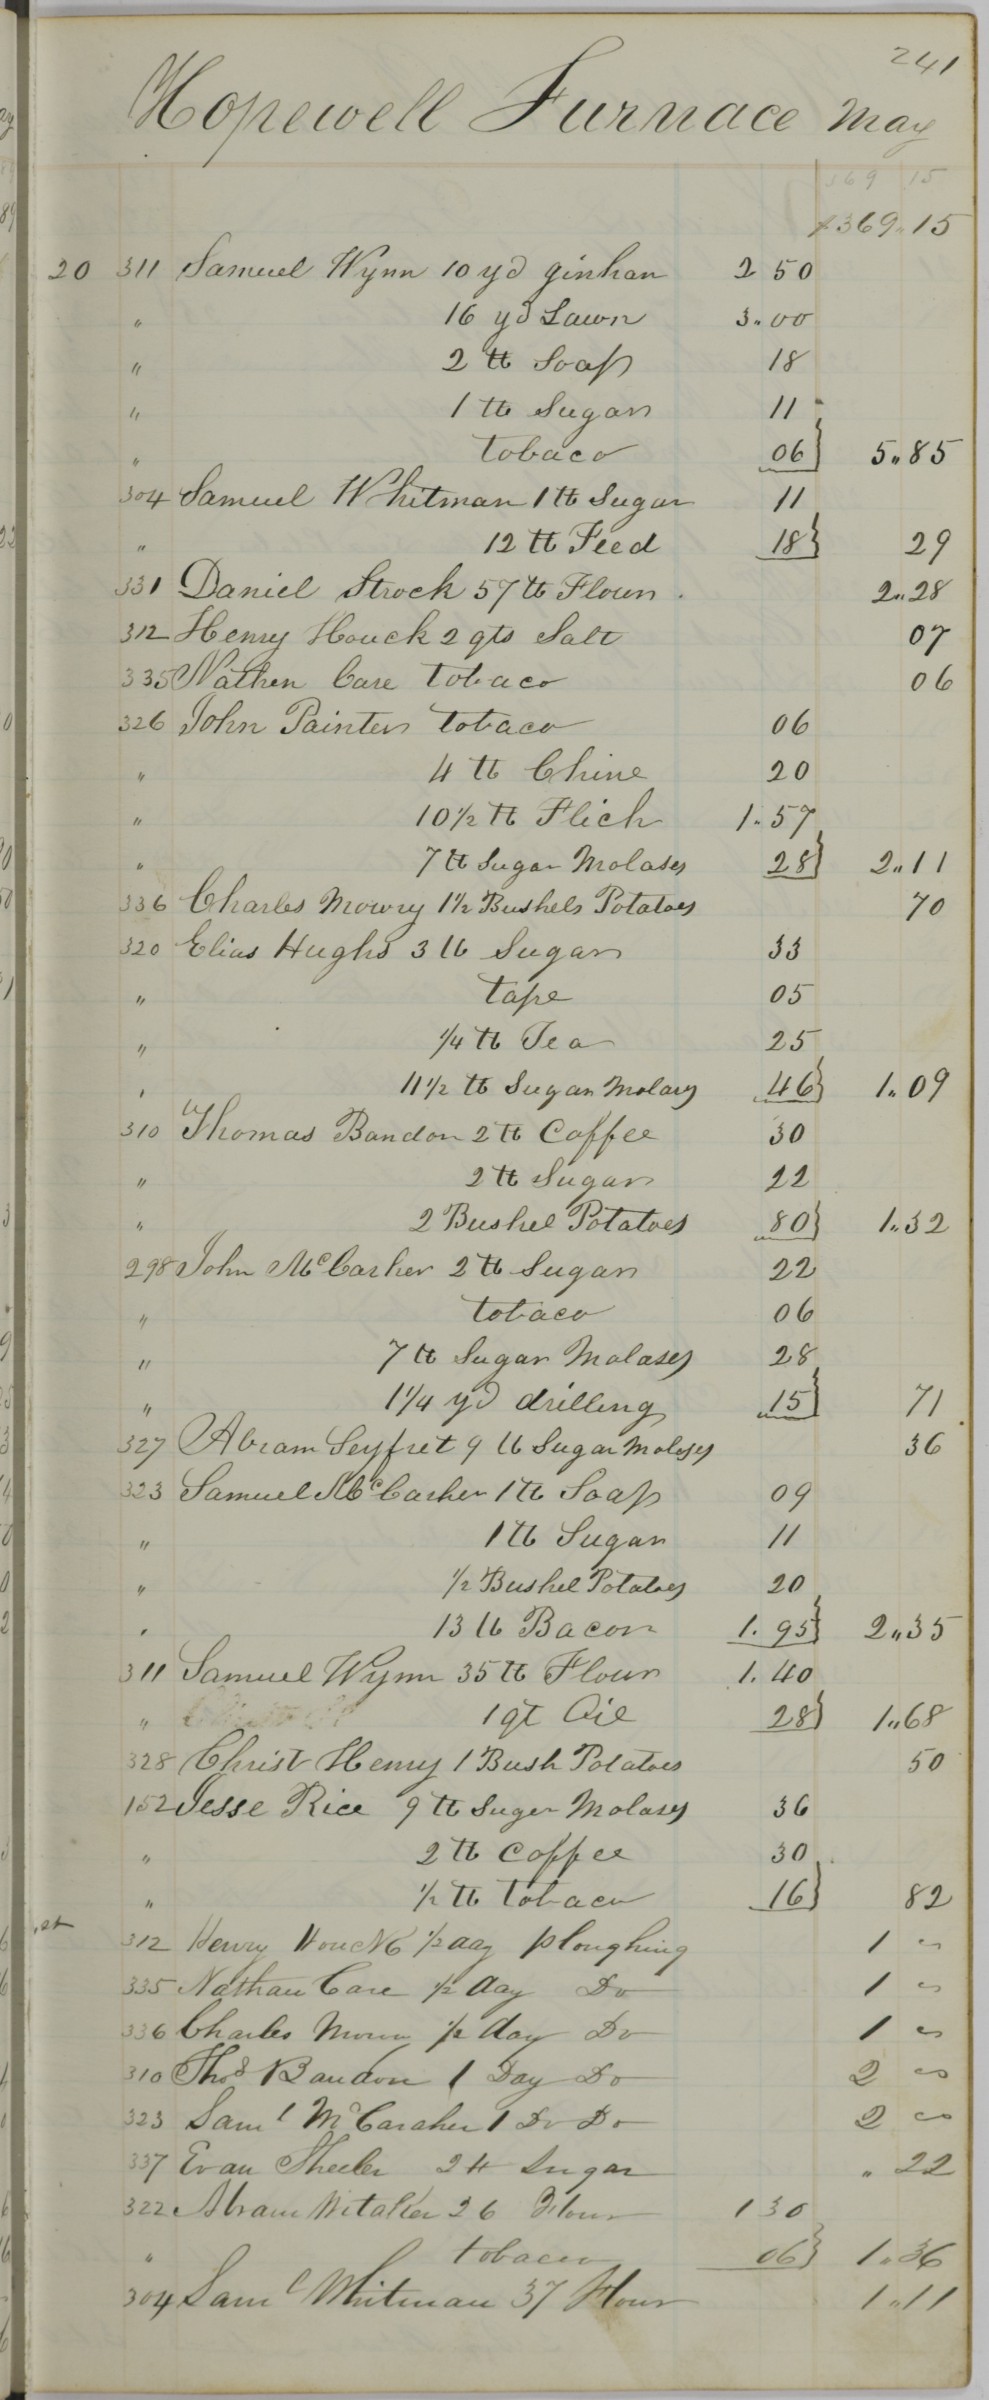 241
Hopewell Furnace May
369 15
369.15
20 311 Samuel Wynn 10 yd ginhan 2 50
" 16 yd Lawn 3.00
" 2 ℔ Soap 18
" 1 ℔ Sugar 11
" tobaco 06} 5.,85
304 Samuel Whitman 1 ℔ Sugar 11
" 12 ℔ Feed 18} 29
331 Daniel Strock 57 ℔ Flour 2.,28
312 Henry Houck 2 qts Salt 07
335 Nathen Care tobaco 06
326 John Painter tobaco 06
" 4 ℔ Chine 20
" 10 1/2 ℔ Flich 1.57
" 7 ℔ Sugar Molases 28} 2.,11
336 Charles Mowry 1 1/2 Bushels Potatoes 70
320 Elias Hughs 3 lb Sugar 33
" tape 05
" 1/4 ℔ Tea 25
" 11 1/2 ℔ Sugar Molasy 46} 1.,09
310 Thomas Bandon 2 ℔ Coffee 30
" 2 ℔ Sugar 22
" 2 Bushel Potatoes 80} 1.,32
298 John McCarher 2 ℔ Sugar 22
" tobaco 06
" 7 ℔ Sugar Molases 28
" 1 1/4 yd drilling 15} 71
327 Abram Seyfret 9 lb Sugar Molases 36
323 Samuel McCarher 1 ℔ Soap 09
" 1 ℔ Sugar 11
" 1/2 Bushel Potatoes 20
" 13 lb Bacon 1.95} 2.,35
311 Samuel Wynn 35 ℔ Flour 1.40
" 1 qt Oil 28} 1.,68
328 Christ Henry 1 Bush Potatoes 50
152 Jesse Rice 9 ℔ Suger Molases 36
" 2 ℔ Coffee 30
" 1/2 ℔ tobaco 16} 82
312 Henry Houck 1/2 day ploughing 1 "
335 Nathan Care 1/2 day Do 1 "
336 Charles Mowry 1/2 day Do 1 "
310 Thos Bandon 1 Day Do 2 "
323 Saml McCaraher 1 Do Do 2 "
337 Evan Sheeler 2 ℔ Sugar " 22
322 Abram Witaker 26 Flour 1 30
" tobacco 06} 1.,36
304 Saml Whitman 37 Flour 1.,11